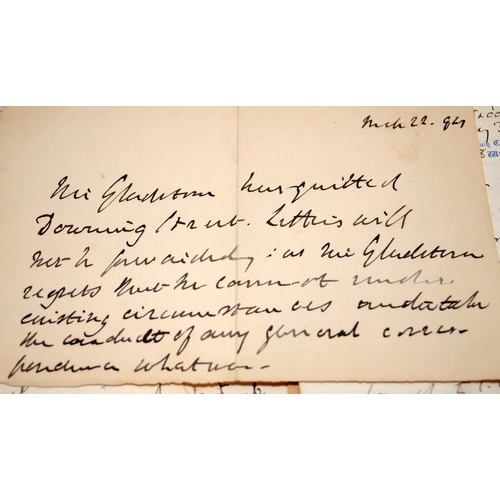 Mch 22. 94
Mr Gladstone has quitted
Downing Street. Letters will
not be forwarded: as Mr Gladstone
regrets that he cannot under
existing circumstances undertake
the conduct of any general corres-
pondence whatever.